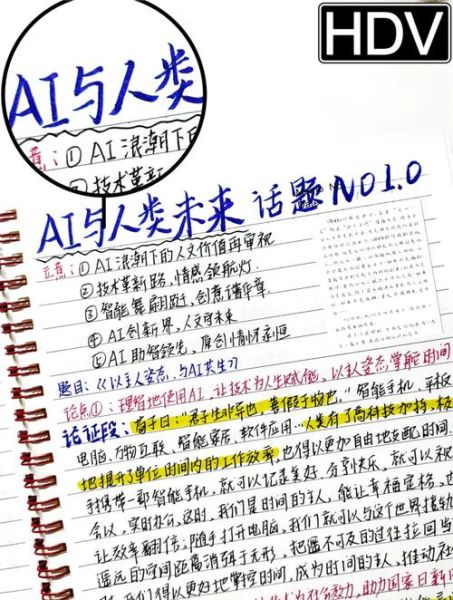 HDV
AI与人类
立意:①AI浪潮下的
②技术革新
AI与人类未来 话题NO1.0
立意:①AI浪潮下的人文价值再审视
②技术革新路,情感领航灯.
③智能舞翩跹,创意谱华章.
④AI创新界,人文可未来
⑤AI助智领先,原创情怀永恒
题目:《以主人姿态,与AI共生》
论点①:理智地使用AI,让技术为人生赋能,以主人姿态掌舵时间
论证段:荀子曰:"君子生非异也,善假于物也."智能手机、平板
电脑、万物互联、智能家居、软件应用…人类有了高科技加持,极
地提升了单位时间内的工作效率,也得以更加自由地支配时间.
携带一部智能手机,就可以记录美好、分享快乐、就可以视
会议,实时办公,这时,我们是时间的主人,能让幸福定格,也
让效率翻倍;随手打开电脑,我们就可以与这个世界接轨
遥远的空间距离消弭于无形,把遥不可及的过往拉回当
我们得以更好地掌控时间,成为时间的主人,推动社
助力国家日新